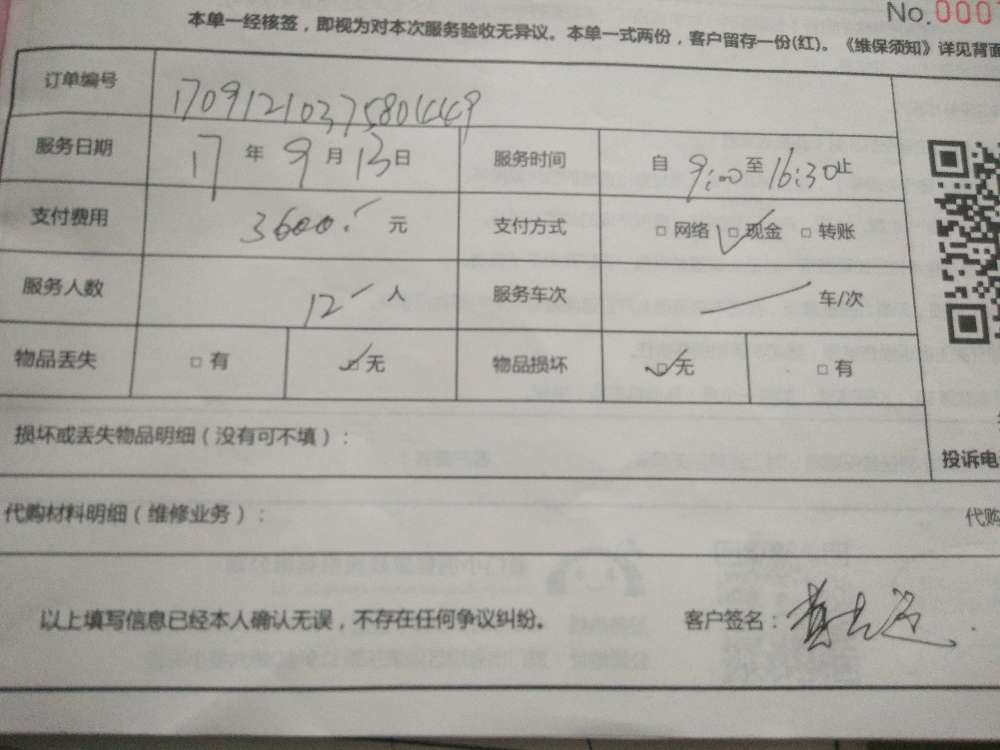 No.000
本单一经核签，即视为对本次服务验收无异议。本单一式两份，客户留存一份(红)。《维保须知》详见背面
订单编号 17091210375801449
服务日期 17 年 9 月 13 日 服务时间 自 9:00 至 16:30 止
支付费用 3600. 元 支付方式 □ 网络 ☑ 现金 □ 转账
服务人数 12 人 服务车次 车/次
物品丢失 □ 有 ☑ 无 物品损坏 ☑ 无 □ 有
损坏或丢失物品明细（没有可不填）：
投诉电
代购材料明细（维修业务）： 代购
以上填写信息已经本人确认无误，不存在任何争议纠纷。 客户签名：